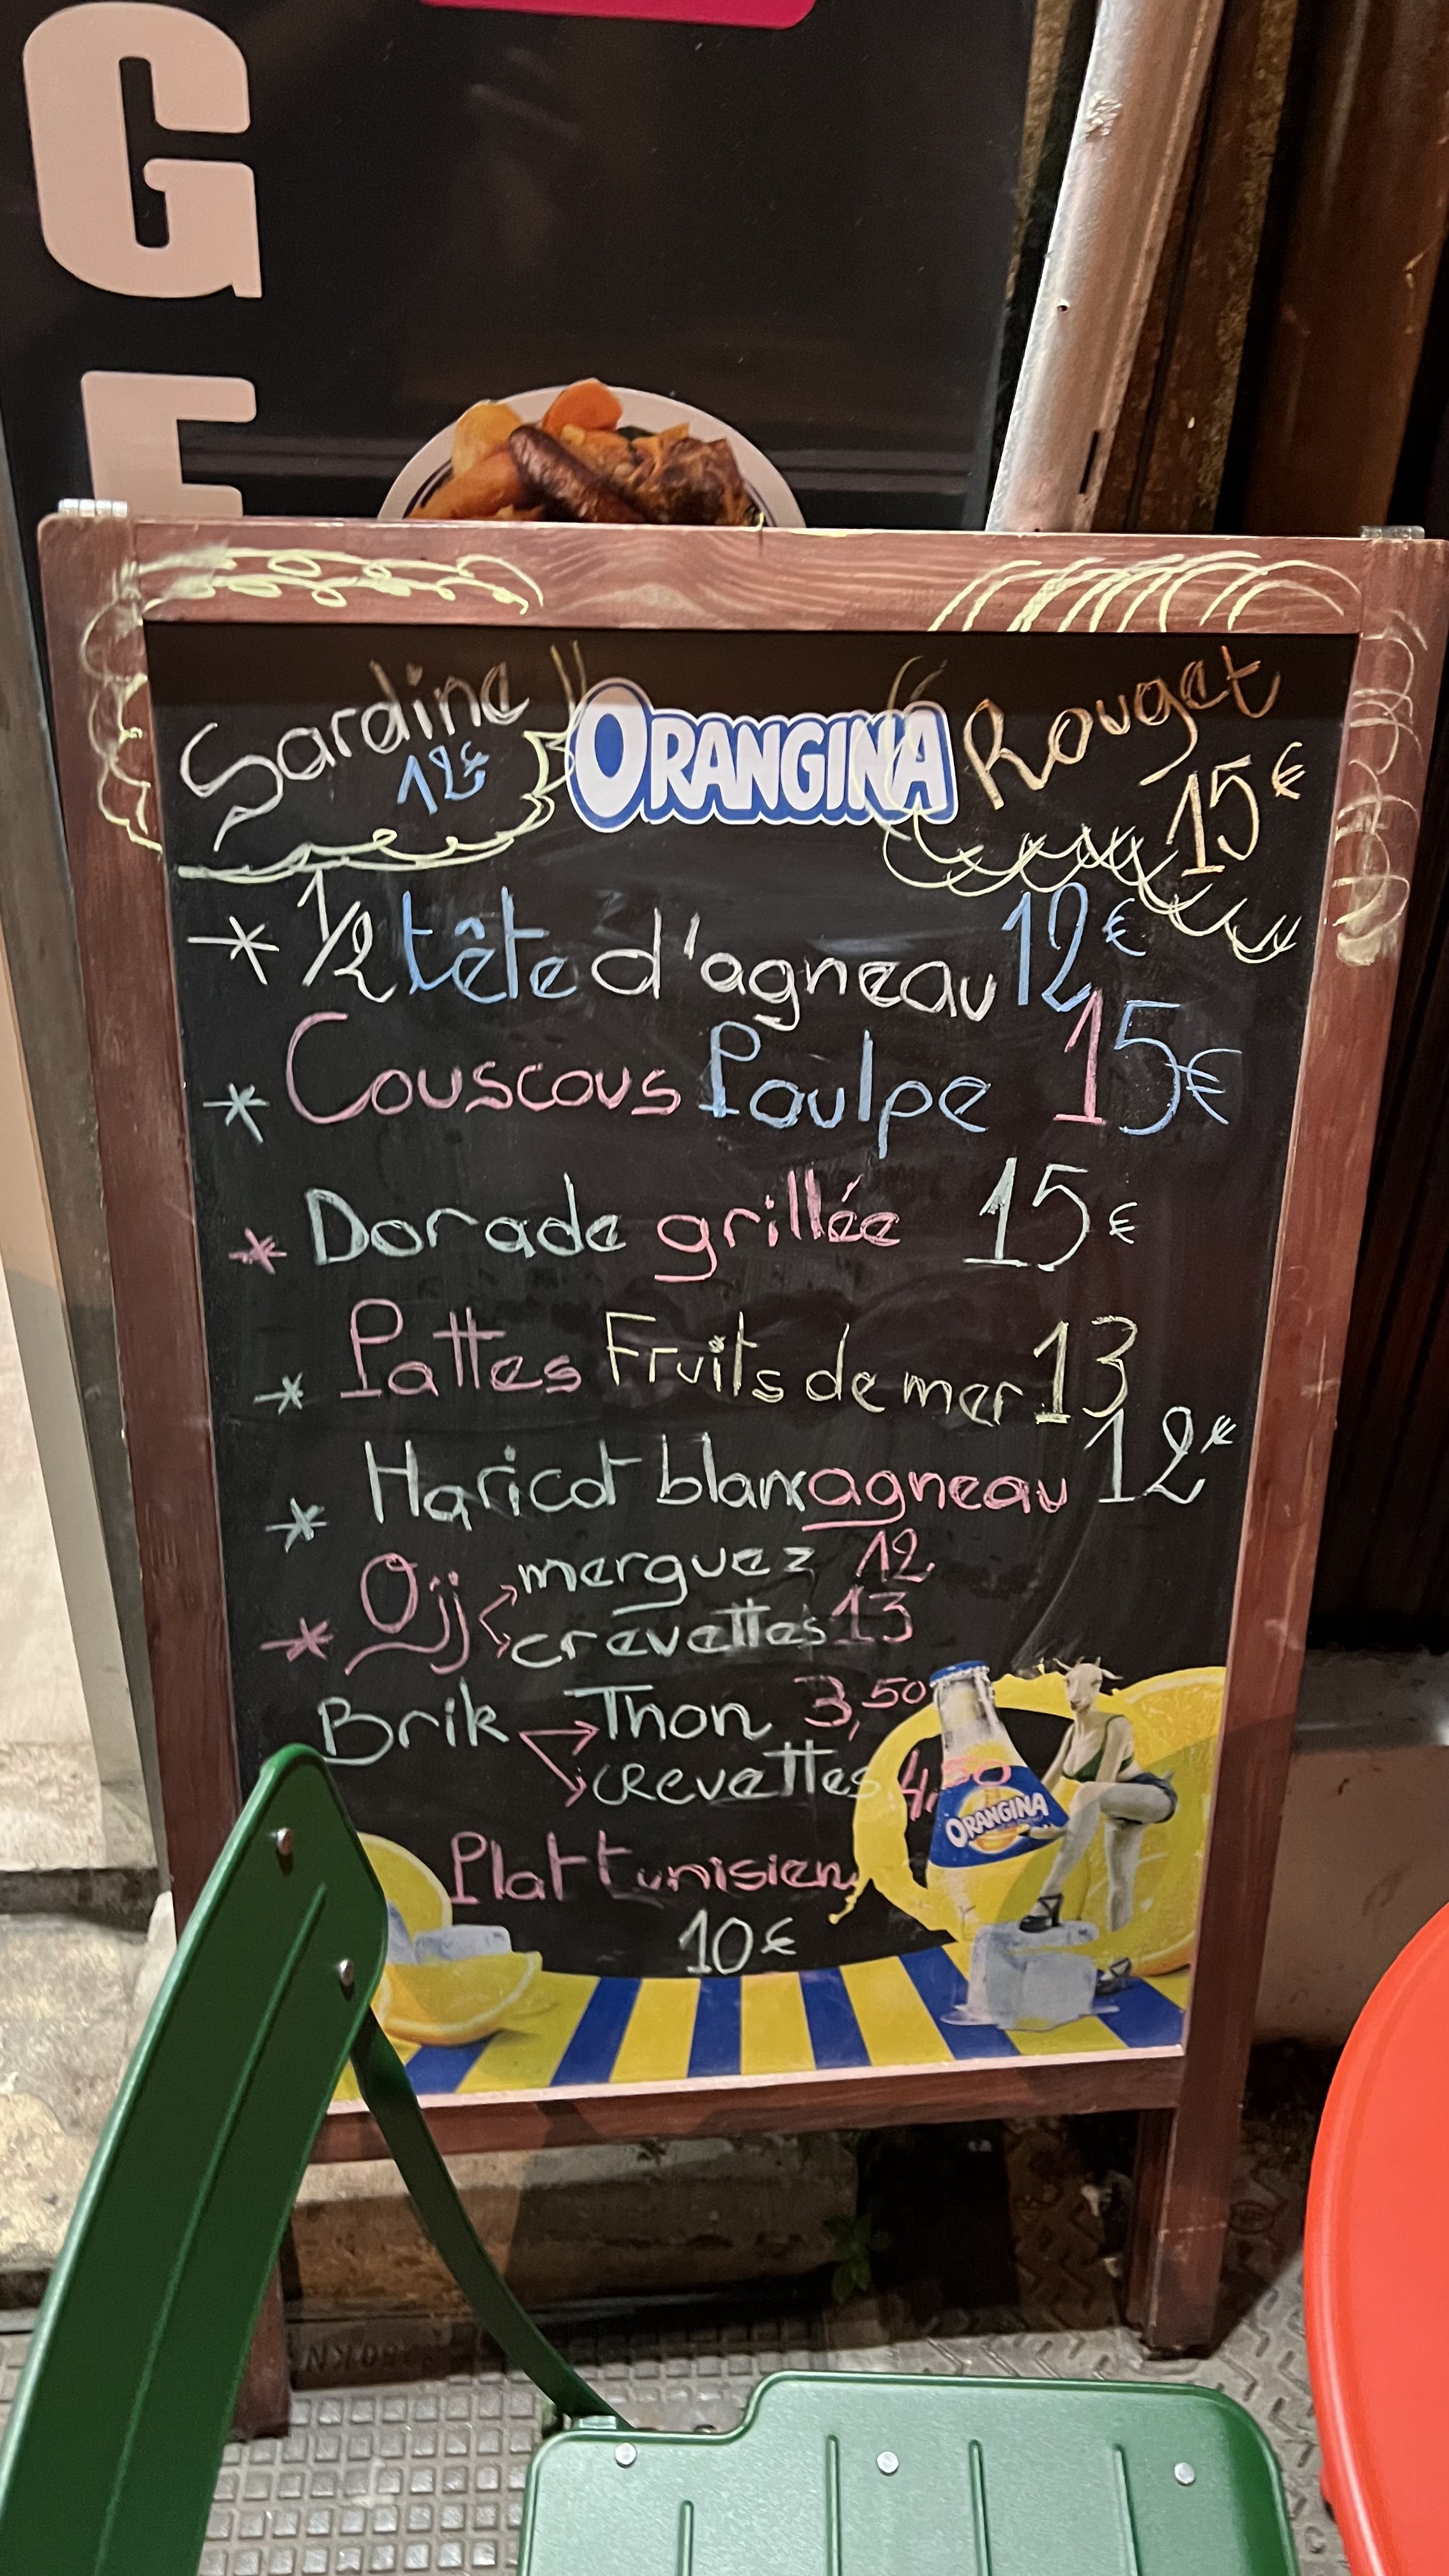 G
E
Sardine
12€
ORANGINA
Rouget
15€
* 1/2 tête d'agneau 12€
* Couscous Poulpe 15€
* Dorade grillée 15€
* Pattes Fruits de mer 13
* Haricot blanx agneau 12€
* Ojj merguez 12
crevettes 13
Brik Thon 3,50
crevettes 4,50
ORANGINA
Plat tunisien
10€